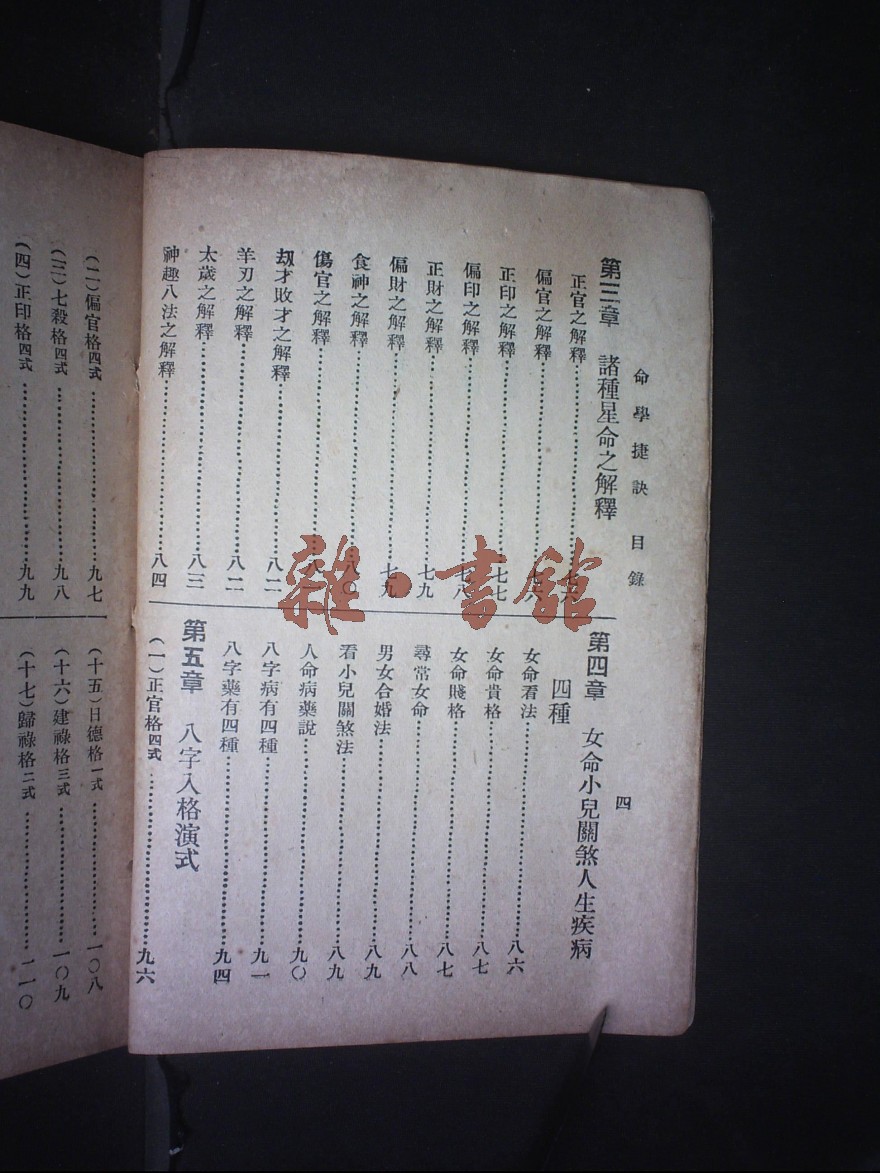 命學捷訣 目錄
四
第三章 諸種星命之解釋
正官之解釋⋯⋯七六
偏官之解釋⋯⋯七六
正印之解釋⋯⋯七七
偏印之解釋⋯⋯七八
正財之解釋⋯⋯七九
偏財之解釋⋯⋯七九
食神之解釋⋯⋯八〇
傷官之解釋⋯⋯八一
刼才敗才之解釋⋯⋯八二
羊刃之解釋⋯⋯八二
太歲之解釋⋯⋯八三
神趣八法之解釋⋯⋯八四
第四章 女命小兒關煞人生疾病
四種
女命看法⋯⋯八六
女命貴格⋯⋯八七
女命賤格⋯⋯八七
尋常女命⋯⋯八八
男女合婚法⋯⋯八九
看小兒關煞法⋯⋯八九
人命病藥說⋯⋯九〇
八字病有四種⋯⋯九一
八字藥有四種⋯⋯九四
第五章 八字入格演式
(一)正官格四式⋯⋯九六
(二)偏官格四式⋯⋯九七
(三)七殺格四式⋯⋯九八
(四)正印格四式⋯⋯九九
(十五)日德格一式⋯⋯一〇八
(十六)建祿格三式⋯⋯一〇九
(十七)歸祿格二式⋯⋯一一〇
雜·書館